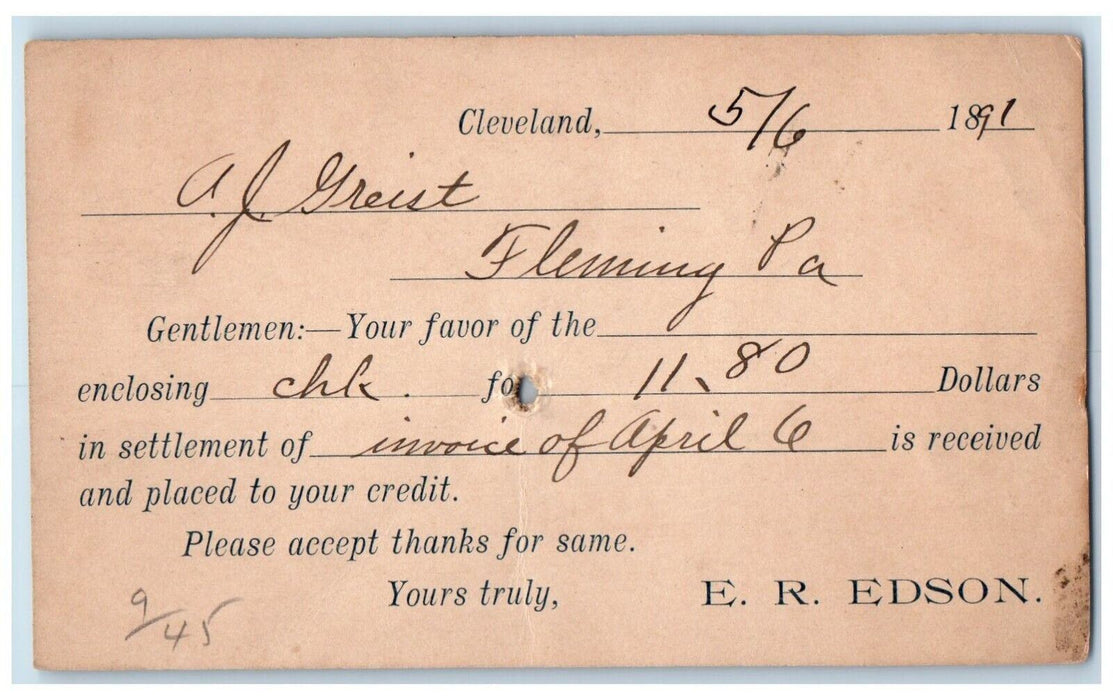 Cleveland, 5/6 1891
A. J. Greist
Fleming Pa
Gentlemen:—Your favor of the
enclosing chk. fo 11.80 Dollars
in settlement of invoice of April 6 is received
and placed to your credit.
Please accept thanks for same.
Yours truly, E. R. EDSON.
9/45